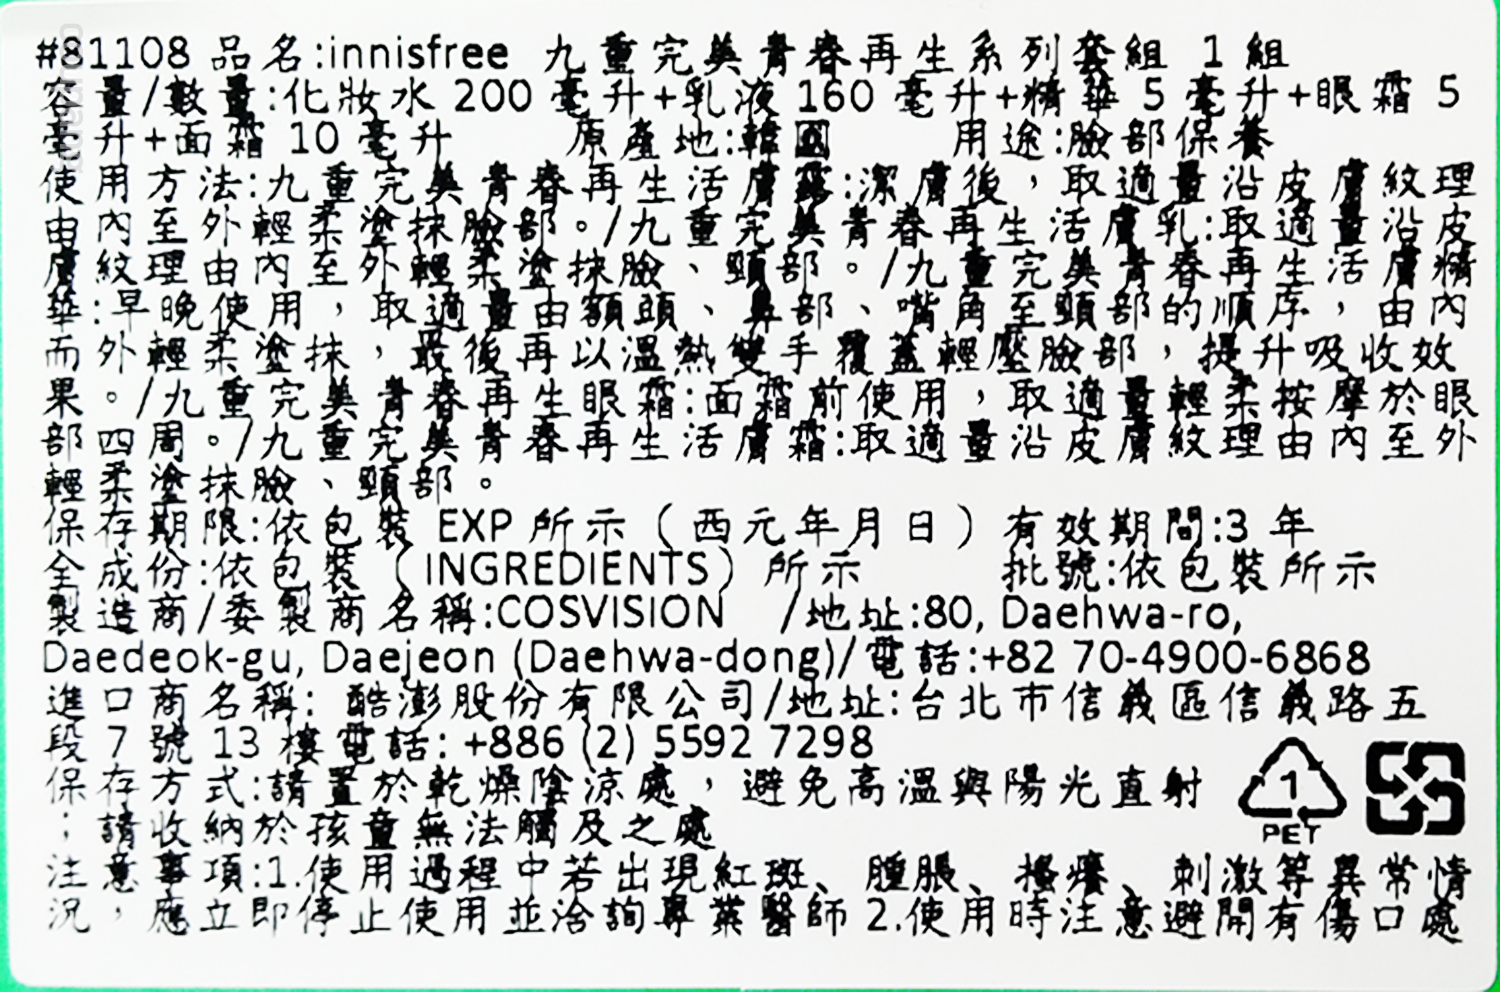 #81108 品名:innisfree 九重完美青春再生系列套組 1 組
容量/數量:化妝水 200 毫升+乳液 160 毫升+精華 5 毫升+眼霜 5
毫升+面霜 10 毫升 原產地:韓國 用途:臉部保養
使用方法:九重完美青春再生活膚露:潔膚後，取適量沿皮膚紋理
由內至外輕柔塗抹臉部。/九重完美青春再生活膚乳:取適量沿皮
膚紋理由內至外輕柔塗抹臉、頸部。/九重完美青春再生活膚精
華:早晚使用，取適量由額頭、鼻部、嘴角至頸部的順序，由內
而外輕柔塗抹，最後再以溫熱雙手覆蓋輕壓臉部，提升吸收效
果。/九重完美青春再生眼霜:面霜前使用，取適量輕柔按摩於眼
部四周。/九重完美青春再生活膚霜:取適量沿皮膚紋理由內至外
輕柔塗抹臉、頸部。
保存期限:依包裝 EXP 所示（西元年月日）有效期間:3 年
全成份:依包裝（INGREDIENTS）所示 批號:依包裝所示
製造商/委製商名稱:COSVISION /地址:80, Daehwa-ro,
Daedeok-gu, Daejeon (Daehwa-dong)/電話:+82 70-4900-6868
進口商名稱: 酷澎股份有限公司/地址:台北市信義區信義路五
段 7 號 13 樓電話: +886 (2) 5592 7298
保存方式:請置於乾燥陰涼處，避免高溫與陽光直射
；請收納於孩童無法觸及之處
PET
注意事項:1.使用過程中若出現紅斑、腫脹、搔癢、刺激等異常情
況，應立即停止使用並洽詢專業醫師 2.使用時注意避開有傷口處